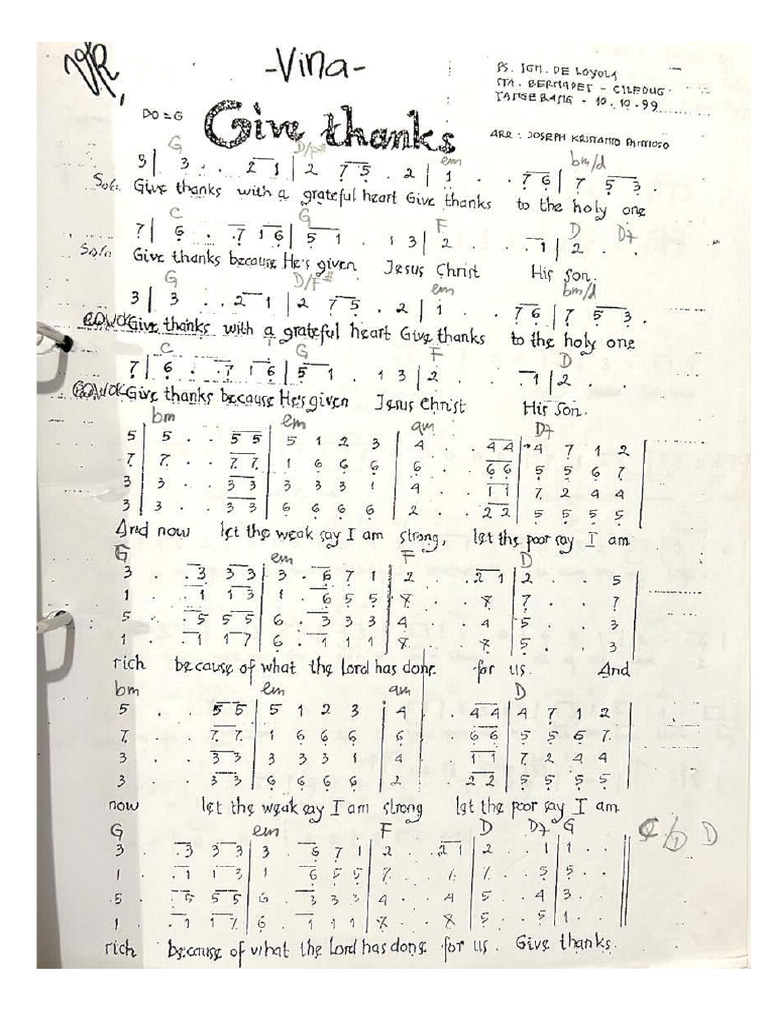 VR,
-Vina-
PS. IGN. DE LOYOLA
STA. BERNADET - CILEDUG
TANGERANG - 10.10.99
DO = G
Give thanks
ARR : JOSEPH KRISTANTO PANTIOSO
G D/F# em bm/d
3 | 3 . . 2 1 | 2 7 5 . 2 | 1 . . 7 6 | 7 5 3 .
Solo: Give thanks with a grateful heart Give thanks to the holy one
C G F D D7
7 | 6 . . 7 1 6 | 5 1 . 1 3 | 2 . . . 1 | 2 . . .
Solo Give thanks because He's given Jesus Christ His Son.
G D/F# em bm/d
3 | 3 . . 2 1 | 2 7 5 . 2 | 1 . . 7 6 | 7 5 3 .
COWOK Give thanks with a grateful heart Give thanks to the holy one
C G F D
7 | 6 . . 7 1 6 | 5 1 . 1 3 | 2 . . . 1 | 2 . . .
COWOK Give thanks because He's given Jesus Christ His Son.
bm em am D7
5 | 5 . . 5 5 | 5 1 2 3 | 4 . . 4 4 | 4 7 1 2
7 | 7 . . 7 7 | 1 6 6 6 | 6 . . 6 6 | 5 5 6 7
3 | 3 . . 3 3 | 3 3 3 1 | 4 . . 1 1 | 7 2 4 4
3 | 3 . . 3 3 | 6 6 6 6 | 2 . . 2 2 | 5 5 5 5
And now let the weak say I am strong, let the poor say I am
G em F D
3 . . 3 3 3 | 3 . 6 7 1 | 2 . . 2 1 | 2 . . 5
1 . . 1 1 3 | 1 . 6 5 5 | 7 . . 7 | 7 . . 7
5 . . 5 5 5 | 6 . 3 3 3 | 4 . . 4 | 5 . . 3
1 . . 1 1 7 | 6 . 1 1 1 | 7 . . 8 | 5 . . 3
rich because of what the Lord has done for us. And
bm em am D
5 . . 5 5 | 5 1 2 3 | 4 . . 4 4 | 4 7 1 2
7 . . 7 7 | 1 6 6 6 | 6 . . 6 6 | 5 5 6 7
3 . . 3 3 | 3 3 3 1 | 4 . . 1 1 | 7 2 4 4
3 . . 3 3 | 6 6 6 6 | 2 . . 2 2 | 5 5 5 5
now let the weak say I am strong let the poor say I am
G em F D D7 G D
3 . . 3 3 3 | 3 . 6 7 1 | 2 . . 2 1 | 2 . . 1 | 1 . .
1 . . 1 1 3 | 1 6 5 5 | 7 . . 7 | 7 . . 5 | 5 . .
5 . . 5 5 5 | 6 . 3 3 3 | 4 . . 4 | 5 . 4 | 3 . .
1 . . 1 1 7 | 6 . 1 1 1 | 8 . . 8 | 5 . . 5 | 1 . .
rich because of what the Lord has done for us. Give thanks.